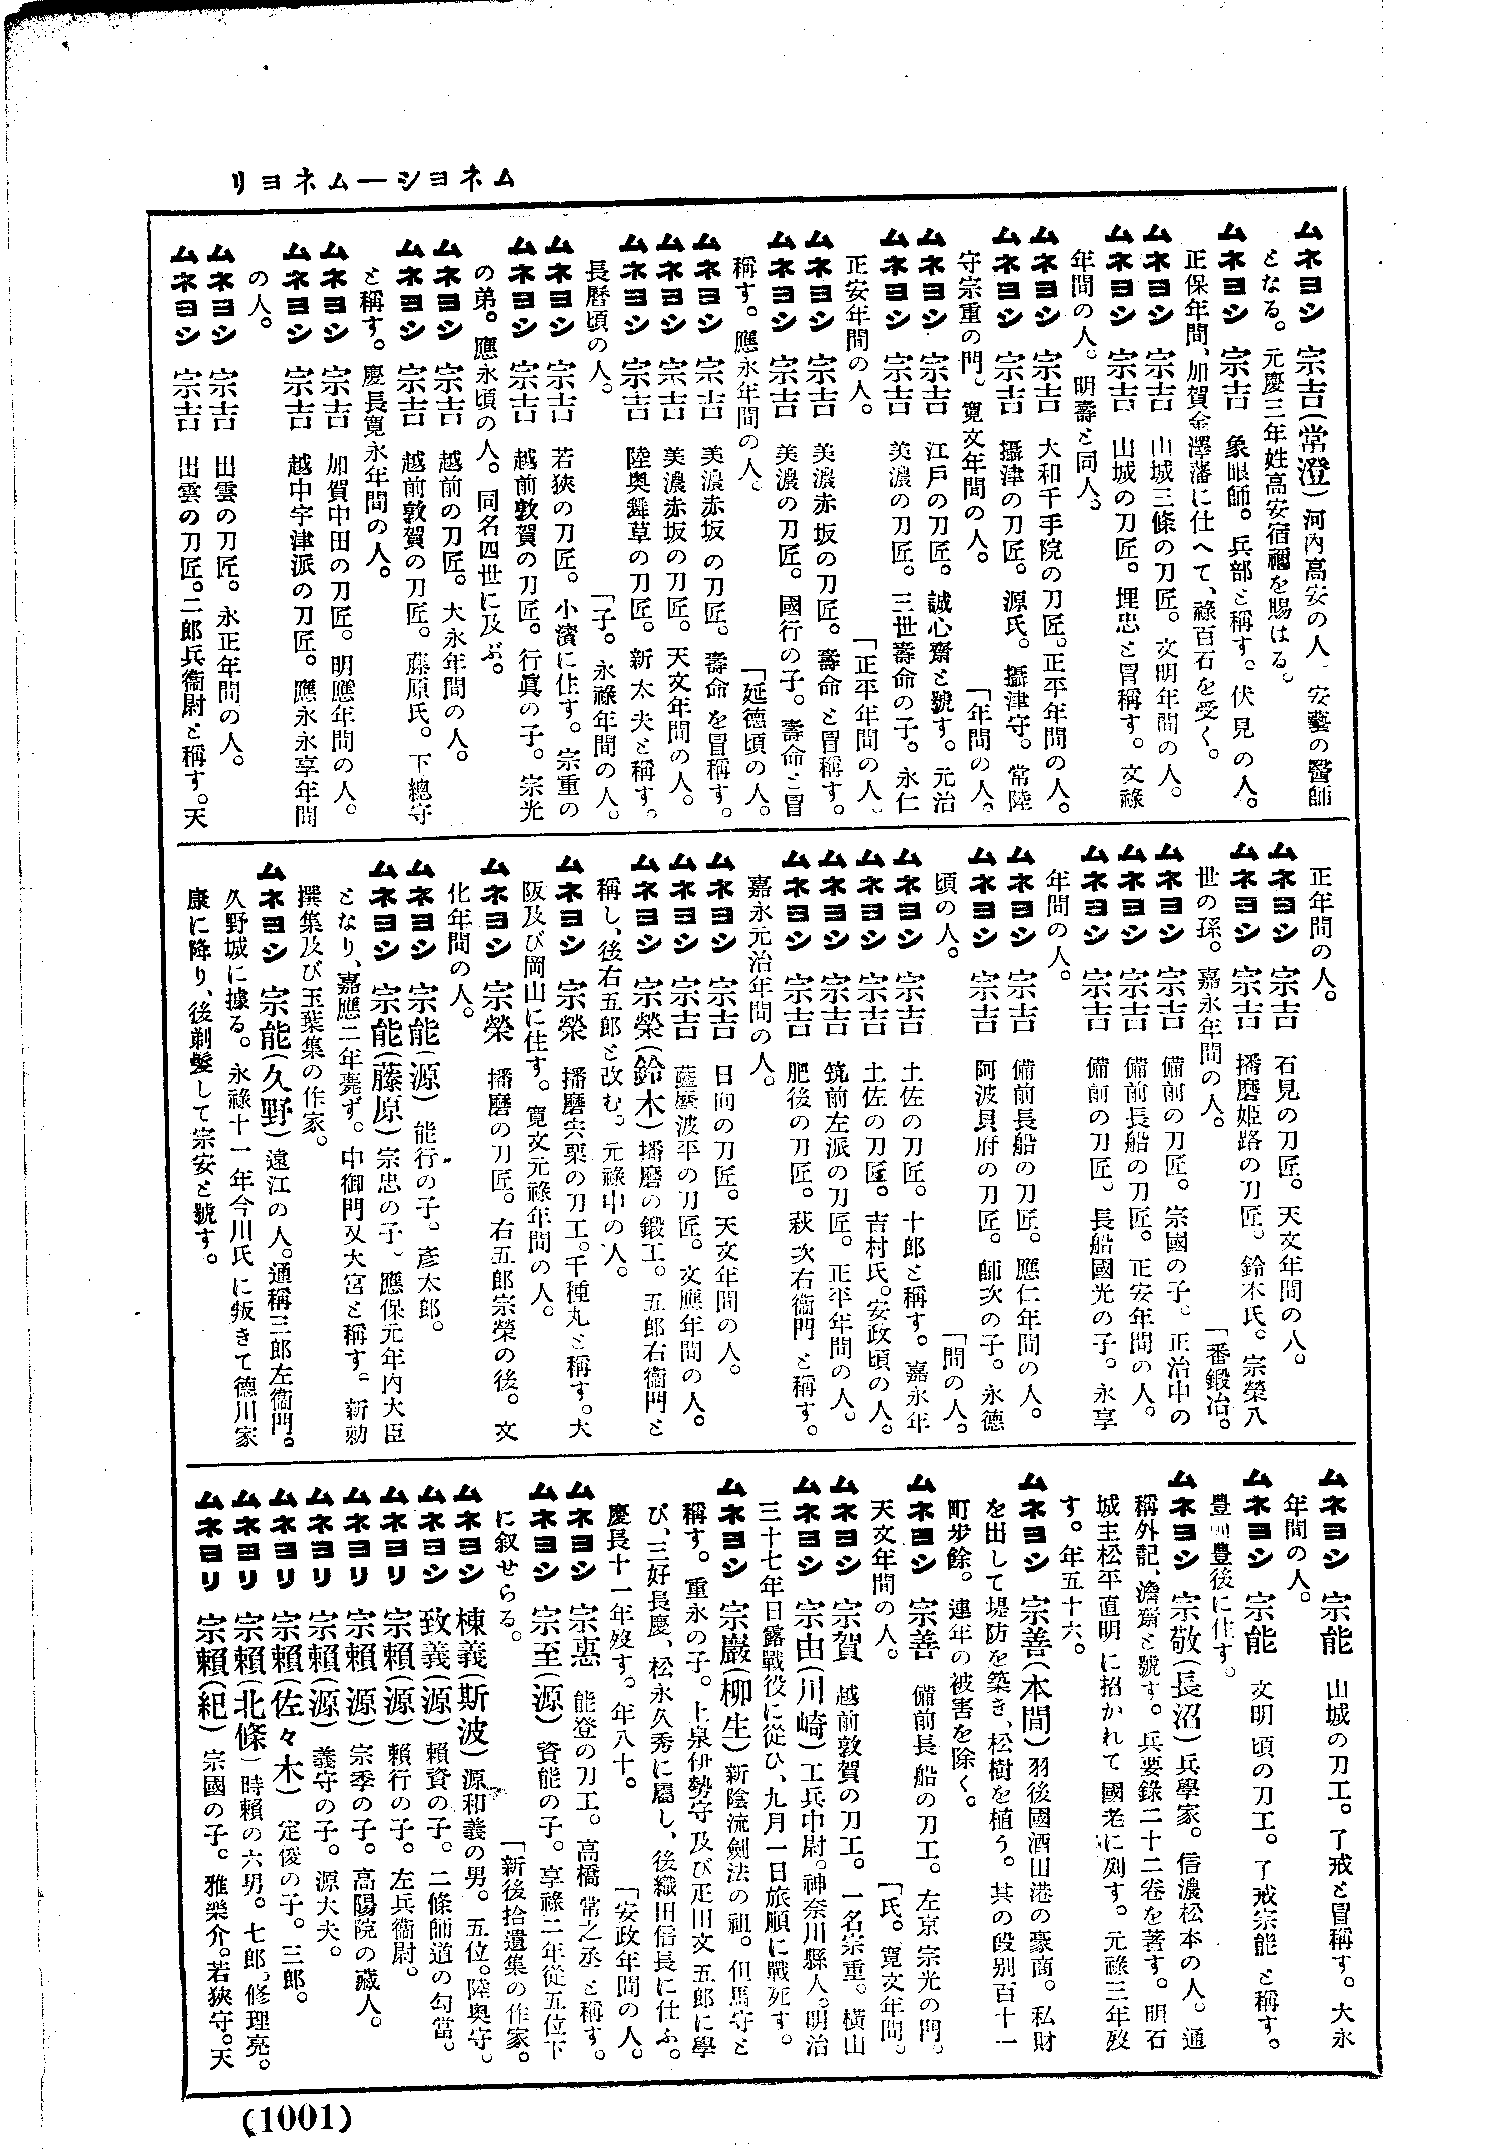 ムネヨシ—ムネヨリ
ムネヨシ 宗吉(常澄)河內高安の人。安藝の醫師
となる。元慶三年姓高安宿禰を賜はる。
ムネヨシ 宗吉 象眼師。兵部と稱す。伏見の人。
正保年間、加賀金澤藩に仕へて、祿百石を受く。
ムネヨシ 宗吉 山城三條の刀匠。文明年間の人。
ムネヨシ 宗吉 山城の刀匠。埋忠と冒稱す。文祿
年間の人。明壽と同人。
ムネヨシ 宗吉 大和千手院の刀匠。正平年間の人。
ムネヨシ 宗吉 攝津の刀匠。源氏。攝津守。常陸
守宗重の門。寬文年間の人。 「年間の人。
ムネヨシ 宗吉 江戶の刀匠。誠心齋と號す。元治
ムネヨシ 宗吉 美濃の刀匠。三世壽命の子。永仁
正安年間の人。 「正平年間の人。
ムネヨシ 宗吉 美濃赤坂の刀匠。壽命と冒稱す。
ムネヨシ 宗吉 美濃の刀匠。國行の子。壽命と冒
稱す。應永年間の人。 「延德頃の人。
ムネヨシ 宗吉 美濃赤坂の刀匠。壽命を冒稱す。
ムネヨシ 宗吉 美濃赤坂の刀匠。天文年間の人。
ムネヨシ 宗吉 陸奧舞草の刀匠。新太夫と稱す。
長曆頃の人。 「子。永祿年間の人。
ムネヨシ 宗吉 若狹の刀匠。小濱に住す。宗重の
ムネヨシ 宗吉 越前敦賀の刀匠。行眞の子。宗光
の弟。應永頃の人。同名四世に及ぶ。
ムネヨシ 宗吉 越前の刀匠。大永年間の人。
ムネヨシ 宗吉 越前敦賀の刀匠。藤原氏。下總守
と稱す。慶長寬永年間の人。
ムネヨシ 宗吉 加賀中田の刀匠。明應年間の人。
ムネヨシ 宗吉 越中宇津派の刀匠。應永永享年間
の人。
ムネヨシ 宗吉 出雲の刀匠。永正年間の人。
ムネヨシ 宗吉 出雲の刀匠。二郎兵衞尉と稱す。天
正年間の人。
ムネヨシ 宗吉 石見の刀匠。天文年間の人。
ムネヨシ 宗吉 播磨姬路の刀匠。鈴木氏。宗榮八
世の孫。嘉永年間の人。 「番鍛冶。
ムネヨシ 宗吉 備前の刀匠。宗國の子。正治中の
ムネヨシ 宗吉 備前長船の刀匠。正安年間の人。
ムネヨシ 宗吉 備前の刀匠。長船國光の子。永享
年間の人。
ムネヨシ 宗吉 備前長船の刀匠。應仁年間の人。
ムネヨシ 宗吉 阿波貝府の刀匠。師次の子。永德
頃の人。 「間の人。
ムネヨシ 宗吉 土佐の刀匠。十郎と稱す。嘉永年
ムネヨシ 宗吉 土佐の刀匠。吉村氏。安政頃の人。
ムネヨシ 宗吉 筑前左派の刀匠。正平年間の人。
ムネヨシ 宗吉 肥後の刀匠。萩次右衞門と稱す。
嘉永元治年間の人。
ムネヨシ 宗吉 日向の刀匠。天文年間の人。
ムネヨシ 宗吉 薩摩波平の刀匠。文應年間の人。
ムネヨシ 宗榮(鈴木)播磨の鍛工。五郎右衞門と
稱し、後右五郎と改む。元祿中の人。
ムネヨシ 宗榮 播磨宍粟の刀工。千種丸と稱す。大
阪及び岡山に住す。寬文元祿年間の人。
ムネヨシ 宗榮 播磨の刀匠。右五郎宗榮の後。文
化年間の人。
ムネヨシ 宗能(源)能行の子。彥太郎。
ムネヨシ 宗能(藤原)宗忠の子。應保元年內大臣
となり、嘉應二年薨ず。中御門又大宮と稱す。新勅
撰集及び玉葉集の作家。
ムネヨシ 宗能(久野)遠江の人。通稱三郎左衞門。
久野城に據る。永祿十一年今川氏に叛きて德川家
康に降り、後剃髮して宗安と號す。
ムネヨシ 宗能 山城の刀工。了戒と冒稱す。大永
年間の人。
ムネヨシ 宗能 文明頃の刀工。了戒宗能と稱す。
豐前豐後に住す。
ムネヨシ 宗敬(長沼)兵學家。信濃松本の人。通
稱外記、澹齋と號す。兵要錄二十二卷を著す。明石
城主松平直明に招かれて國老に列す。元祿三年歿
す。年五十六。
ムネヨシ 宗善(本間)羽後國酒田港の豪商。私財
を出して堤防を築き、松樹を植う。其の段別百十一
町步餘。連年の被害を除く。
ムネヨシ 宗善 備前長船の刀工。左京宗光の門。
天文年間の人。 「氏。寬文年間。
ムネヨシ 宗賀 越前敦賀の刀工。一名宗重。橫山
ムネヨシ 宗由(川崎)工兵中尉。神奈川縣人。明治
三十七年日露戰役に從ひ、九月一日旅順に戰死す。
ムネヨシ 宗巖(柳生)新陰流劍法の祖。但馬守と
稱す。重永の子。上泉伊勢守及び疋田文五郎に學
び、三好長慶、松永久秀に屬し、後織田信長に仕ふ。
慶長十一年歿す。年八十。 「安政年間の人。
ムネヨシ 宗惠 能登の刀工。高橋常之丞と稱す。
ムネヨシ 宗至(源)資能の子。享祿二年從五位下
に叙せらる。 「新後拾遺集の作家。
ムネヨシ 棟義(斯波)源和義の男。五位。陸奧守。
ムネヨシ 致義(源)賴資の子。二條師道の勾當。
ムネヨリ 宗賴(源)賴行の子。左兵衞尉。
ムネヨリ 宗賴(源)宗季の子。高陽院の藏人。
ムネヨリ 宗賴(源)義守の子。源大夫。
ムネヨリ 宗賴(佐々木)定俊の子。三郎。
ムネヨリ 宗賴(北條)時賴の六男。七郎。修理亮。
ムネヨリ 宗賴(紀)宗國の子。雅樂介。若狹守。天
(1001)